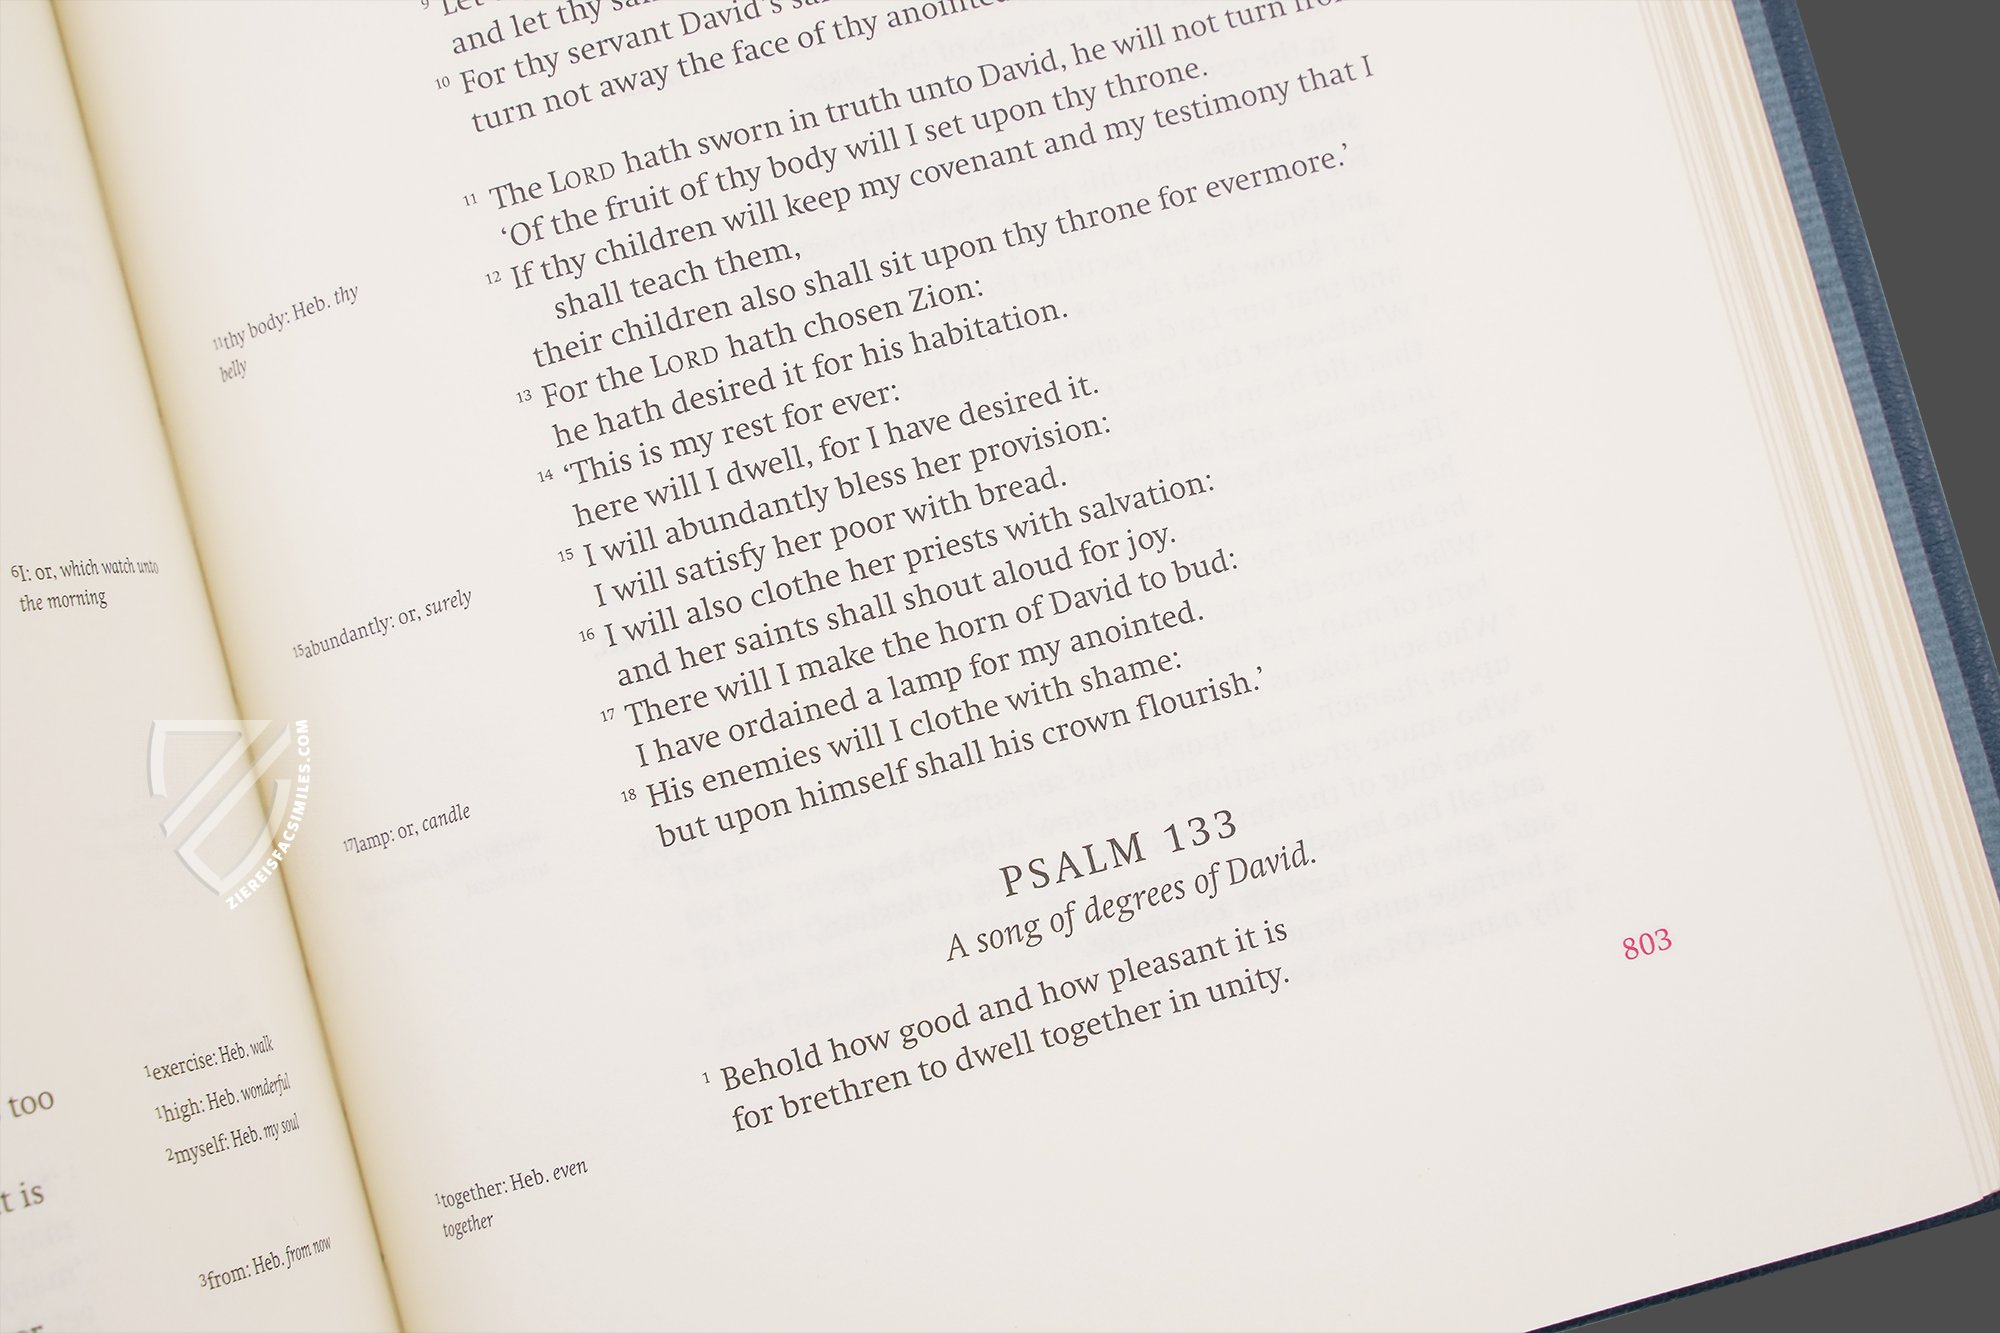 6I: or, which watch unto
the morning
too
1exercise: Heb. walk
1high: Heb. wonderful
2myself: Heb. my soul
t is
3from: Heb. from now
9
and let thy
10 For thy servant David's
turn not away the face of thy anointed
11 The LORD hath sworn in truth unto David, he will not turn from
‘Of the fruit of thy body will I set upon thy throne.
12 If thy children will keep my covenant and my testimony that I
shall teach them,
their children also shall sit upon thy throne for evermore.’
13 For the LORD hath chosen Zion:
he hath desired it for his habitation.
14 ‘This is my rest for ever:
here will I dwell, for I have desired it.
15 I will abundantly bless her provision:
I will satisfy her poor with bread.
16 I will also clothe her priests with salvation:
and her saints shall shout aloud for joy.
17 There will I make the horn of David to bud:
I have ordained a lamp for my anointed.
18 His enemies will I clothe with shame:
but upon himself shall his crown flourish.’
PSALM 133
A song of degrees of David.
1 Behold how good and how pleasant it is
for brethren to dwell together in unity.
11thy body: Heb. thy
belly
15abundantly: or, surely
17lamp: or, candle
1together: Heb. even
together
803
ZIEREISFACSIMILES.COM